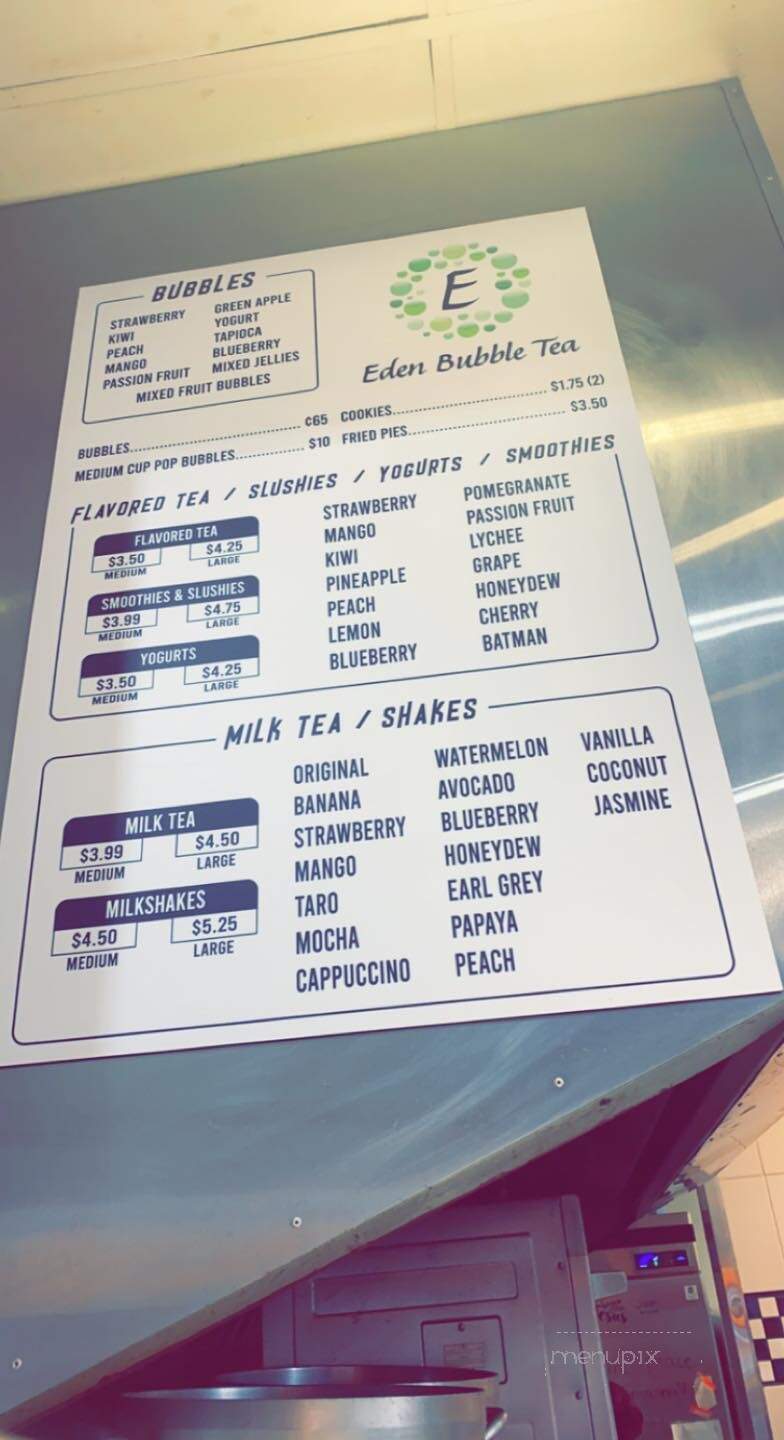 BUBBLES
STRAWBERRY GREEN APPLE
KIWI YOGURT
PEACH TAPIOCA
MANGO BLUEBERRY
PASSION FRUIT MIXED JELLIES
MIXED FRUIT BUBBLES
E
Eden Bubble Tea
BUBBLES........................................ ¢65
MEDIUM CUP POP BUBBLES............... $10
COOKIES.................................... $1.75 (2)
FRIED PIES.................................... $3.50
FLAVORED TEA / SLUSHIES / YOGURTS / SMOOTHIES
FLAVORED TEA
$3.50 $4.25
MEDIUM LARGE
SMOOTHIES & SLUSHIES
$3.99 $4.75
MEDIUM LARGE
YOGURTS
$3.50 $4.25
MEDIUM LARGE
STRAWBERRY
MANGO
KIWI
PINEAPPLE
PEACH
LEMON
BLUEBERRY
POMEGRANATE
PASSION FRUIT
LYCHEE
GRAPE
HONEYDEW
CHERRY
BATMAN
MILK TEA / SHAKES
MILK TEA
$3.99 $4.50
MEDIUM LARGE
MILKSHAKES
$4.50 $5.25
MEDIUM LARGE
ORIGINAL
BANANA
STRAWBERRY
MANGO
TARO
MOCHA
CAPPUCCINO
WATERMELON
AVOCADO
BLUEBERRY
HONEYDEW
EARL GREY
PAPAYA
PEACH
VANILLA
COCONUT
JASMINE
menupix